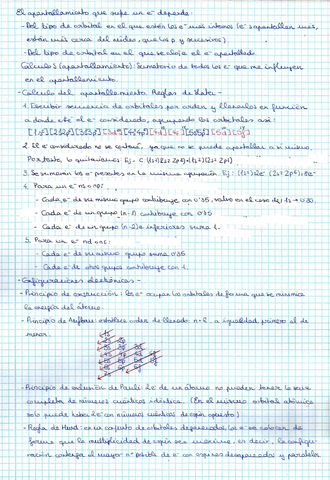 El apantallamiento que sufre un e⁻ depende:
- Del tipo de orbital en el que estén los e⁻ más internos (e⁻ s apantallan más,
están más cerca del núcleo, que los p y sucesivos)
- Del tipo de orbital en el que se sitúa el e⁻ apantallado.
Cálculo S (apantallamiento): Sumatorio de todos los e⁻ que me influyen
en el apantallamiento.
- Cálculo del apantallamiento Reglas de Slater -
1. Escribir secuencia de orbitales por orden y llenarlos en función
a donde esté el e⁻ considerado, agrupando los orbitales así:
[1s][2s2p][3s3p][3d][4s4p][4d][4f][5s5p][5d][5f]
2. El e⁻ considerado no se quita, ya que no se puede apantallar a sí mismo,
Por tanto, lo quitaríamos: Ej.- C (1s² 2s² 2p²)
3. Se suman los e⁻ presentes en la misma agrupación. Ej:
4. Para un e⁻ ns o np:
- Cada e⁻ de su mismo grupo contribuye con 0'35, salvo en el caso del 1s → 0.30.
- Cada e⁻ de un grupo (n-1) contribuye con 0'85
- Cada e⁻ de un grupo (n-2) e inferiores suma 1.
5. Para un e⁻ nd o nf:
- Cada e⁻ de su mismo grupo suma 0'35
- Cada e⁻ de otros grupos contribuye con 1.
- Configuraciones electrónicas -
- Principio de construcción: los e⁻ ocupan los orbitales de forma que se minimice
la energía del átomo.
- Principio de Aufbau: establece orden de llenado n+l, a igualdad, primero el de
menor.
- Principio de exclusión de Pauli: 2 e⁻ de un átomo no pueden tener la serie
completa de números cuánticos idéntica. (En el mismo orbital atómico
solo puede haber 2 e⁻ con números cuánticos de espín opuesto)
- Regla de Hund: en un conjunto de orbitales degenerados, los e⁻ se colocan de
forma que la multiplicidad de espín sea máxima, es decir, la configu-
ración contenga el mayor nº posible de e⁻ con espines desapareados y paralelos